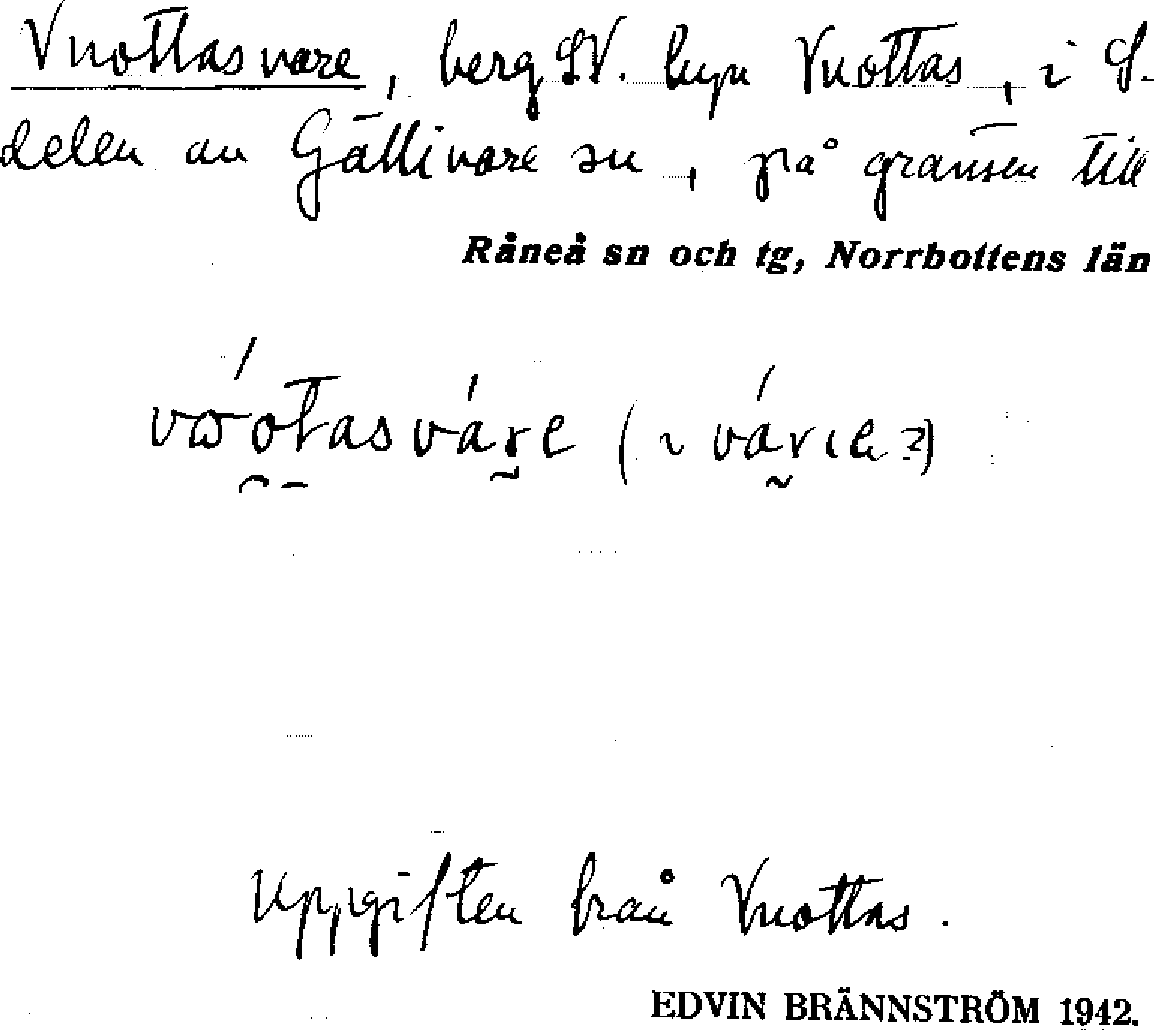 Vuottasvare, berg SV. byn Vuottas, i S.
delen av Gällivare sn, på gränsen till
Råneå sn och tg, Norrbottens län
Uppgiften från Vuottas.
EDVIN BRÄNNSTRÖM 1942.